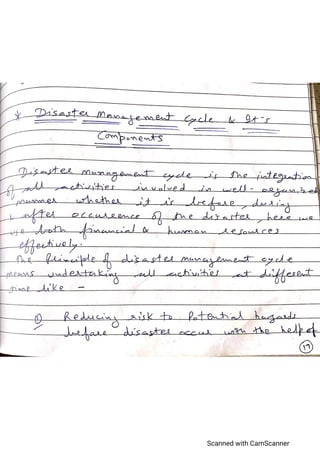 * Disaster Management Cycle & It's
Components
Disaster management cycle is the integration
of all activities involved in well-organized
manner whether it is before, during
& after occurrence of the disaster, here we
use both financial & human resources
effectively.
The Principle of disaster management cycle
means undertaking all activities at different
time like -
① Reducing risk to Potential hazards
before disaster occur with the help of
17
Scanned with CamScanner